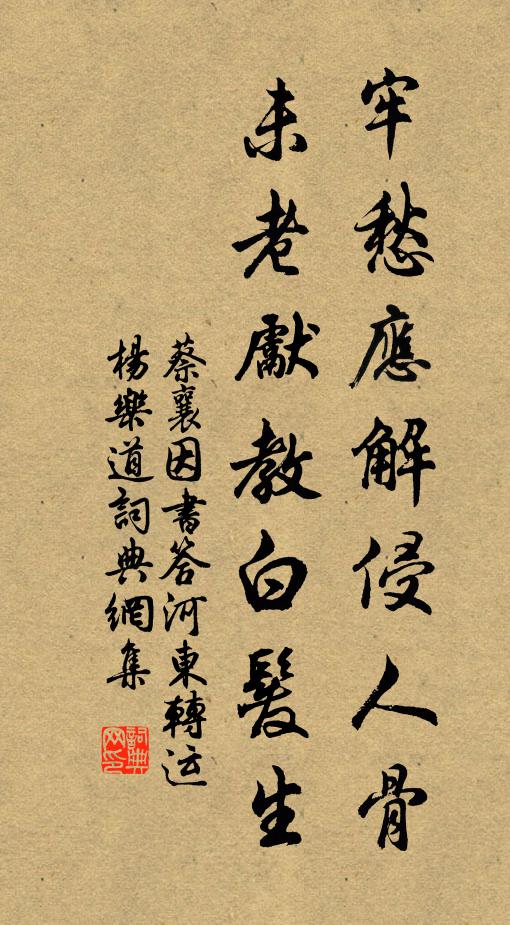 牢愁應解侵人骨
未老獻教白髮生
蔡襄因書答河東轉运
楊樂道詞典網集
詞典网印